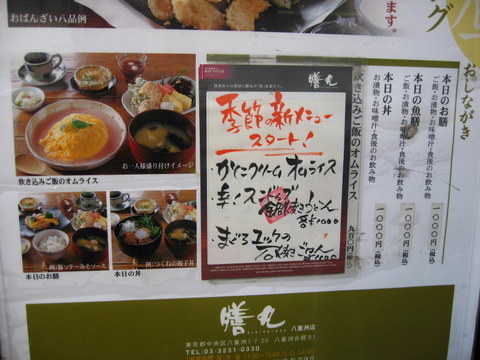 おばんざい八品例
ます。
グ
お一人様盛り付けイメージ
炊き込みご飯のオムライス
例:豚ソテーみそソース
本日のお膳
例:つくねの親子丼
本日の丼
膳丸
季節の新メニュー
スタート!
かにクリームオムライス
辛!スープ
鍋焼きうどん
まぐろユッケの
石焼ごはん
おしながき
本日のお膳
ご飯・お漬物・お味噌汁・食後のお飲み物
本日の魚膳
ご飯・お漬物・お味噌汁・食後のお飲み物
本日の丼
お漬物・お味噌汁・食後のお飲み物
炊き込みご飯のオムライス
一〇〇〇円(税込)
一〇〇〇円(税込)
一〇〇〇円(税込)
九五〇円(税込)
膳丸
八重洲店
東京都中央区八重洲1-7-20 八重洲会館B1
TEL:03-3231-0330